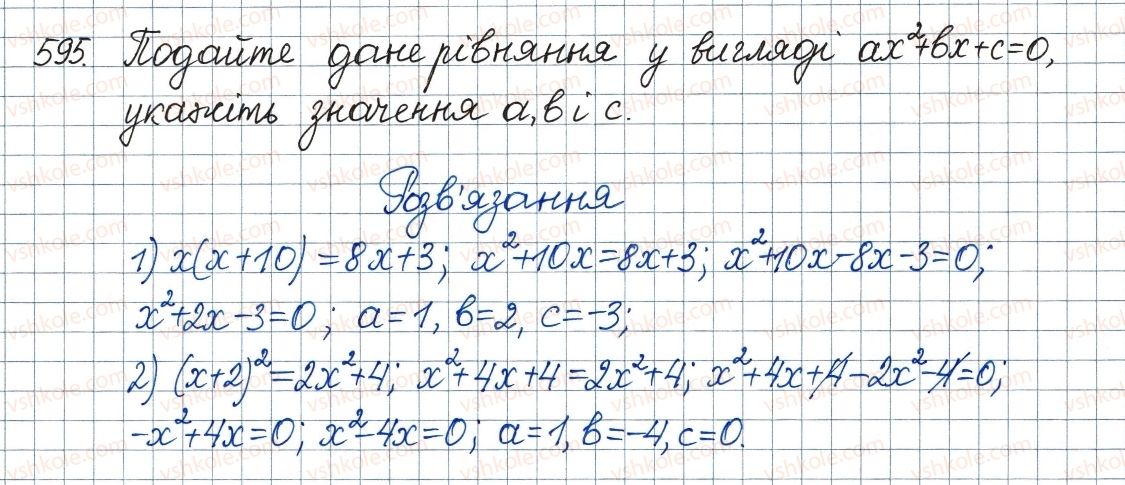 595. Подайте дане рівняння у вигляді ax²+вx+c=0,
укажіть значення a,в і c.
Розв'язання
1) x(x+10)=8x+3; x²+10x=8x+3; x²+10x-8x-3=0;
x²+2x-3=0; a=1, в=2, c=-3;
2) (x+2)²=2x²+4; x²+4x+4=2x²+4; x²+4x+4-2x²-4=0;
-x²+4x=0; x²-4x=0; a=1, в=-4, c=0.
vshkole.com